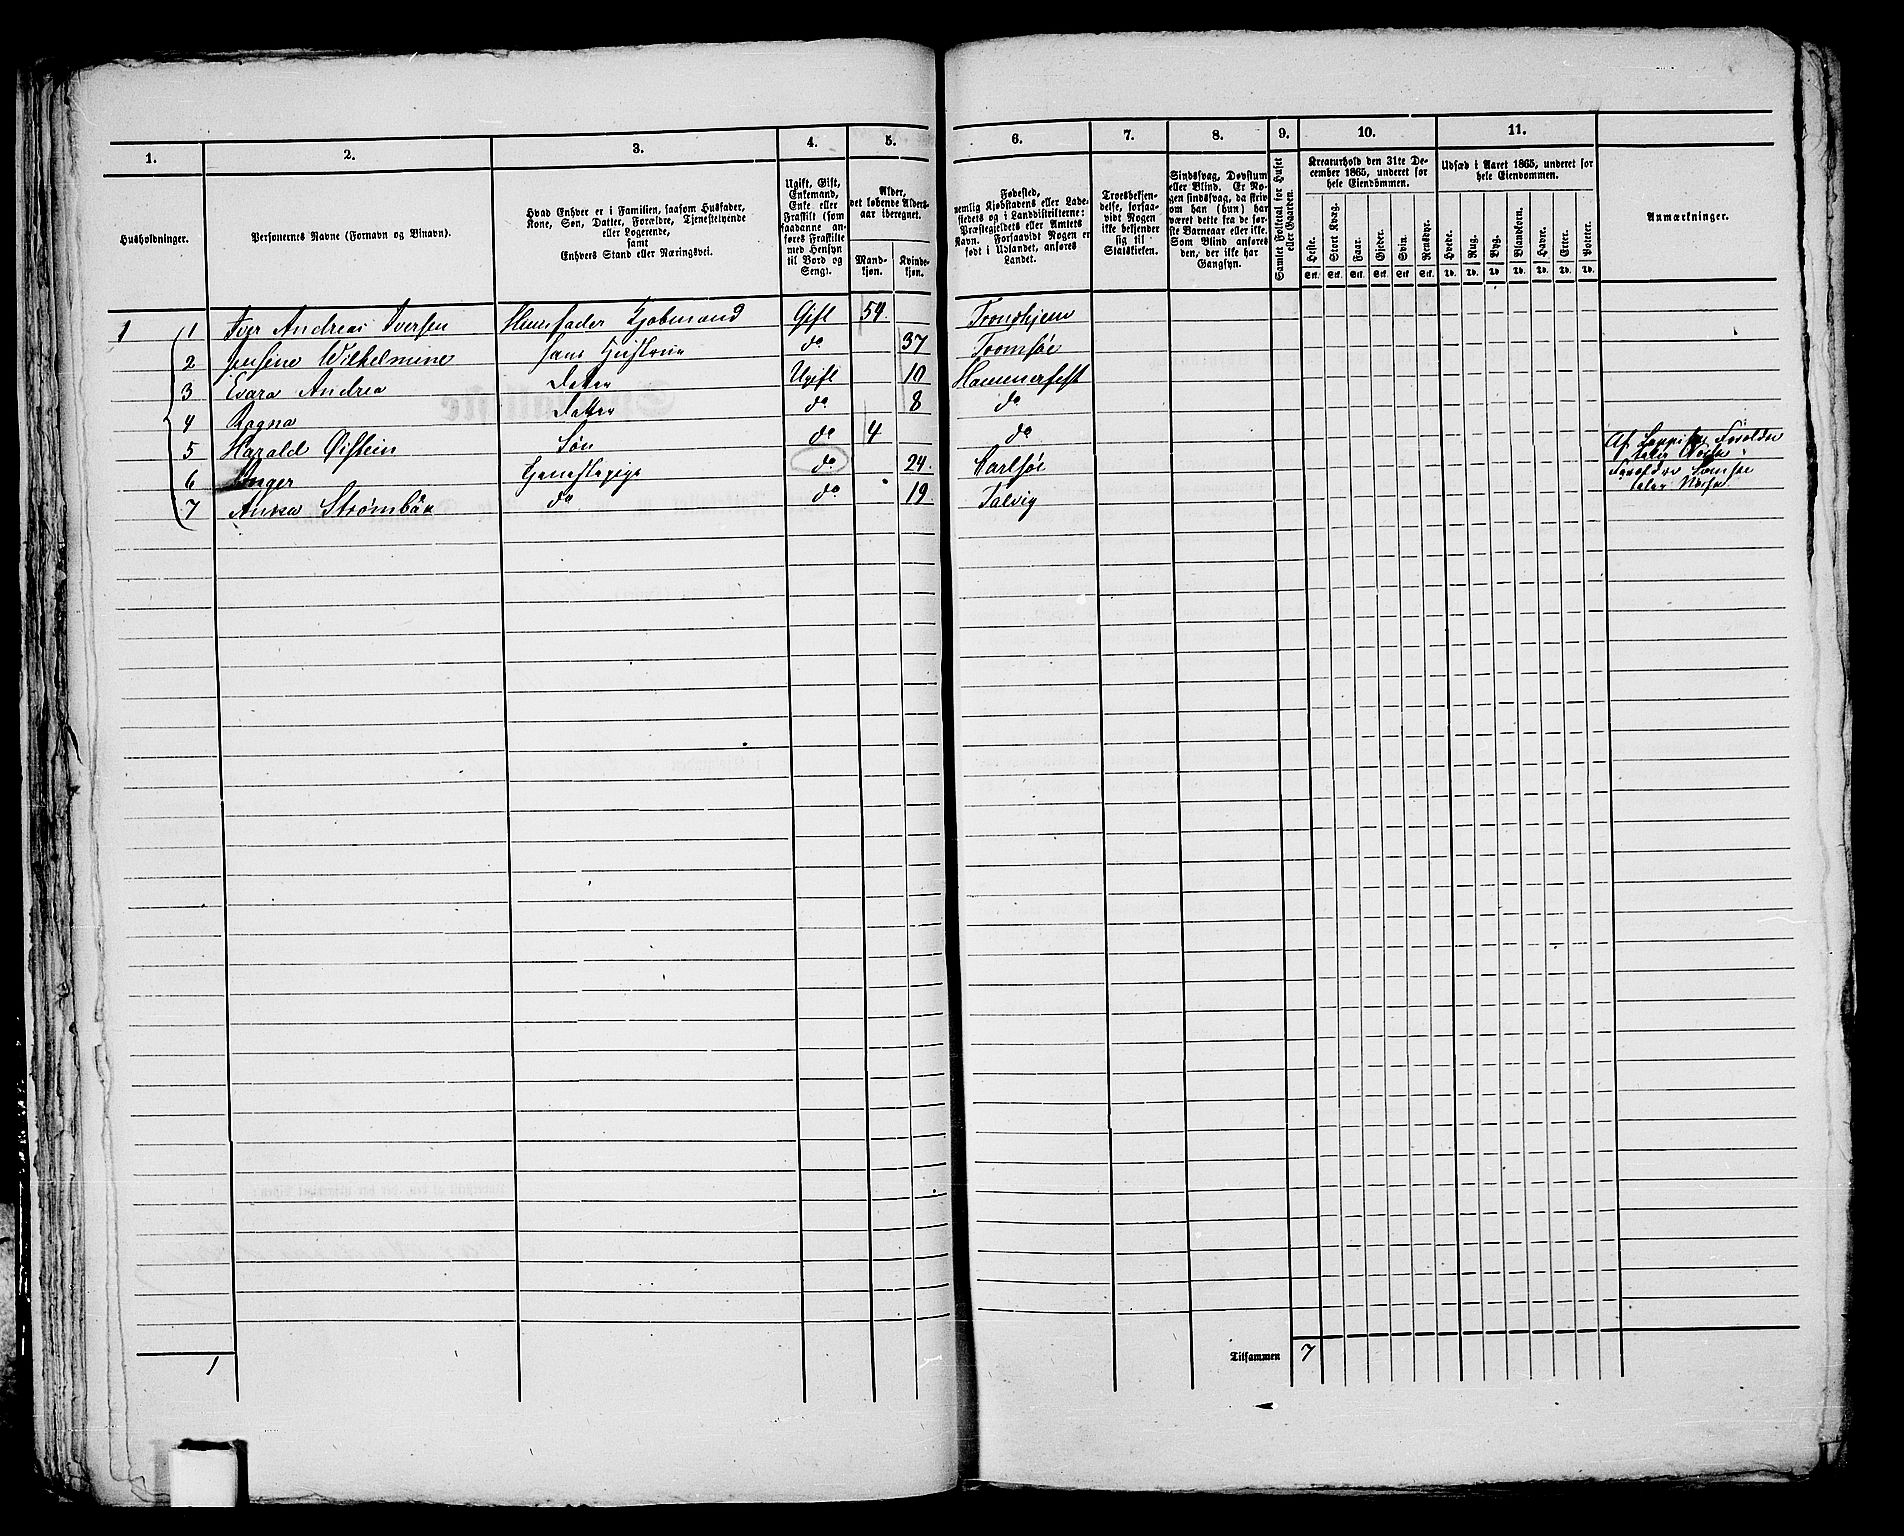 1. 2. 3. 4. 5. 6. 7. 8. 9. 10. 11.
Husholdninger.
Personernes Navne (Fornavn og Binavn).
Hvad Enhver er i Familien, saasom Husfader,
Kone, Søn, Datter, Forældre, Tjenestetyende
eller Logerende,
samt
Enhvers Stand eller Næringsvei.
Ugift, Gift,
Enkemand,
Enke eller
Fraskilt (som
saadanne anføres
Fraskilte
med Hensyn
til Bord og
Seng).
Alder,
det løbende Aldersaar
iberegnet.
Mandkjøn.
Kvindekjøn.
Fødested,
nemlig Kjøbstadens eller Ladestedets
og i Landdistrikterne:
Præstegjeldets eller Amtets
Navn. Forsaavidt Nogen er
født i Udlandet, anføres
Landet.
Troesbekjendelse,
forsaavidt
Nogen
ikke bekjender
sig til
Statskirken.
Sindssvag, Døvstum
eller Blind. Er Nogen
sindssvag, da skriv
om han (hun) har
været dette fra de første
Barneaar eller ikke.
Som Blind anføres
den, der ikke har
Gangsyn.
Samlet Folketal for Huset
eller Gaarden.
Kreaturhold den 31te December
1865, underet for
hele Eiendommen.
Heste. Stort Kvæg. Faar. Gjeder. Svin. Rensdyr.
Stk. Stk. Stk. Stk. Stk. Stk.
Udsæd i Aaret 1865, underet for
hele Eiendommen.
Hvede. Rug. Byg. Blandkorn. Havre. Erter. Poteter.
Td. Td. Td. Td. Td. Td. Td.
Anmærkninger.
1 1 Iver Andreas Iversen Huusfader Kjøbmand Gift 59. Trondhjem
2 Jensine Wilhelmine hans Hustrue do 37 Tromsøe
3 Evara Andrea Datter Ugift 10 Hammerfest
4 Ragna Datter do 8 do
5 Harald Øistein Søn do 4 do
6 Inger do 24. Karlsøe Af Forældre
taler Norsk
7 Anna Strømbäk do do 19 Talvig Forældre
taler Norsk
1 Tilsammen 7